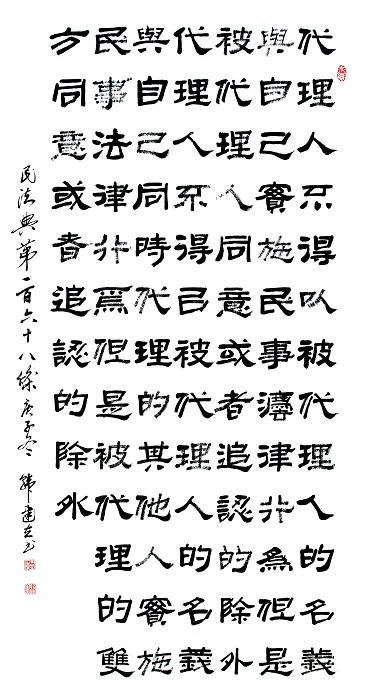 代理人不得以被代理人的名義
與自己實施民事灋律行為但是
被代理人同意或者追認的除外
代理人不得㠯被代理人的名義
與自己同時代理的其他人實施
民事法律行爲但是被代理的雙
方同意或者追認的除外
民法典第一百六十八條 庚子冬